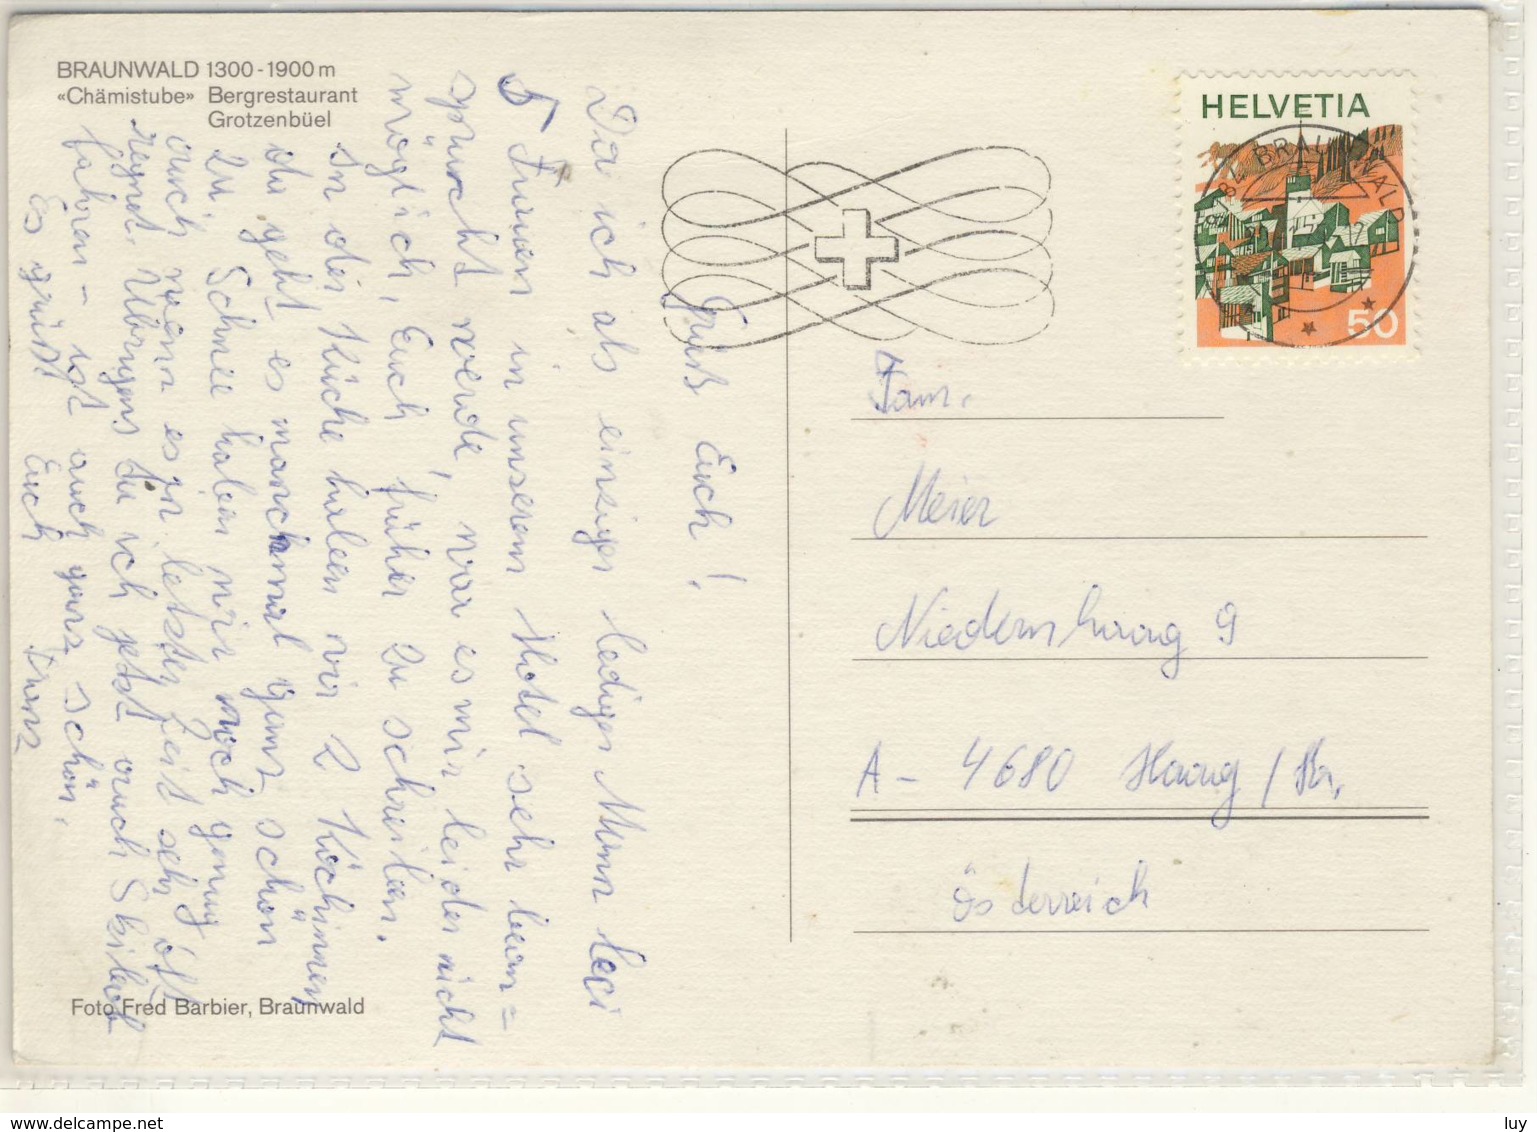 BRAUNWALD 1300-1900 m
«Chämistube» Bergrestaurant
Grotzenbüel
Grüß Euch!
Da ich als einziger lediger Mann bei
5 Frauen in unserem Hotel sehr bean=
sprucht werde, war es mir leider nicht
möglich, Euch früher zu schreiben.
In der Küche haben wir 2 Köchinnen,
da geht es manchmal ganz schön
zu. Schnee haben wir noch genug,
auch wenn es in letzter Zeit sehr oft
regnet. Übrigens tu ich jetzt auch Skilav
fahren - ist auch ganz schön.
Es grüßt Euch Franz
Foto Fred Barbier, Braunwald
HELVETIA
BRAUNWALD
50
Fam.
Meier
Niedernhaag 9
A- 4680 Haag / Hr.
Österreich
www.delcampe.net
luy